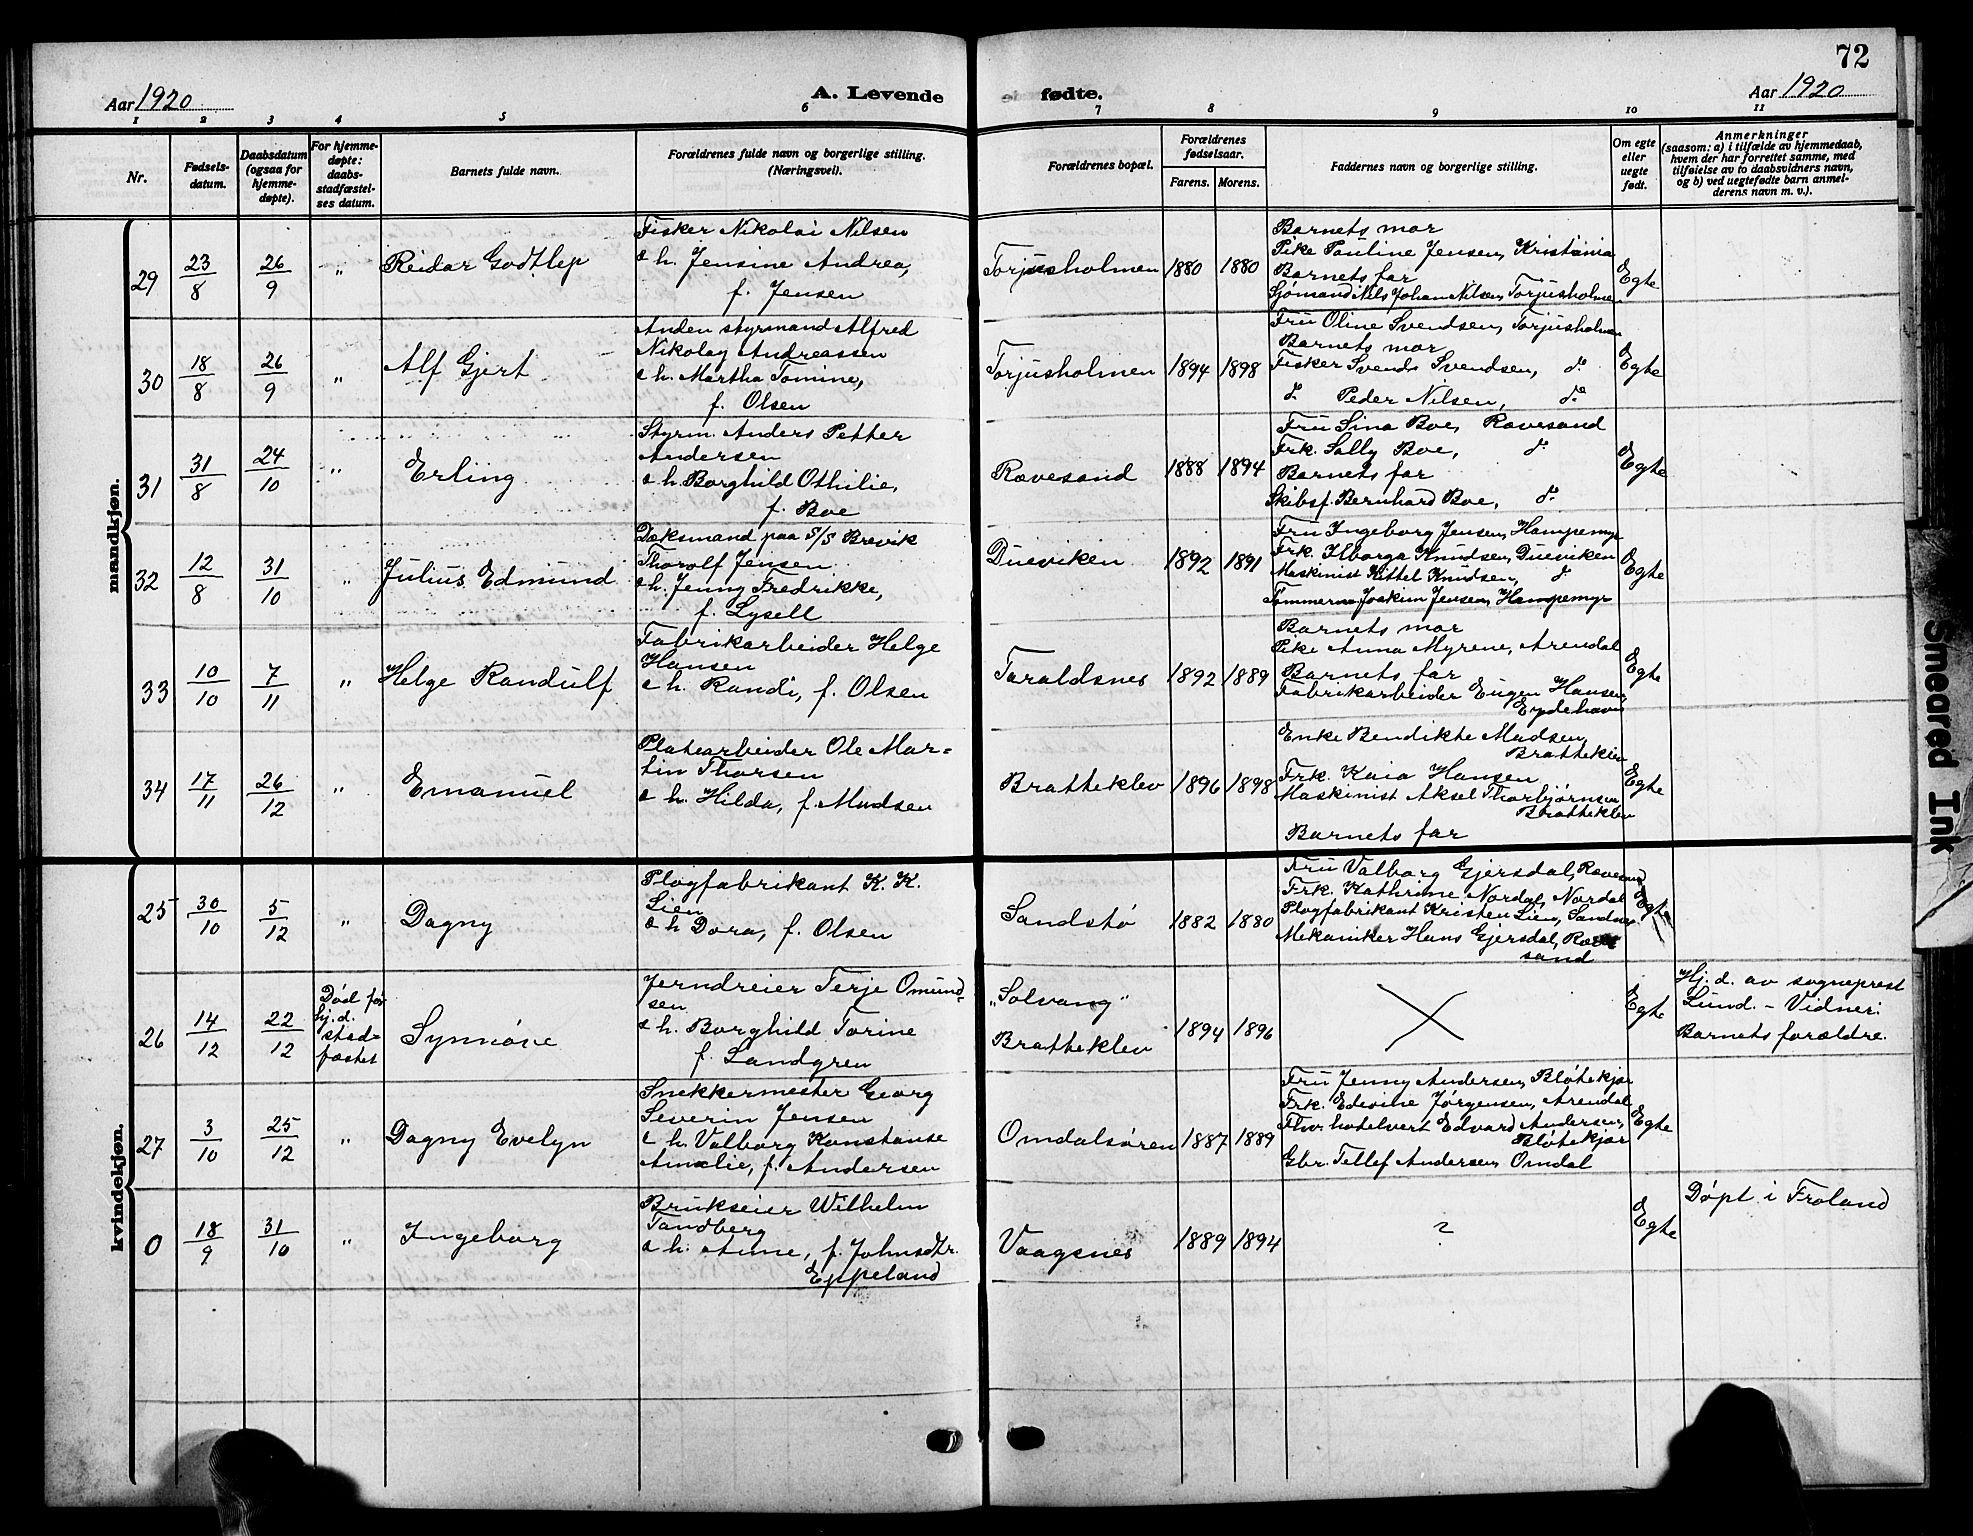 72
Aar 1920
A. Levende
fødte.
Aar 1920
1 2 3 4 5 6 7 8 9 10 11
Nr.
Fødsels-
datum.
Daabsdatum
(ogsaa for
hjemme-
døpte).
For hjemme-
døpte:
daabs-
stadfæstel-
ses datum.
Barnets fulde navn.
Forældrenes fulde navn og borgerlige stilling.
(Næringsvei).
Forældrenes bopæl.
Forældrenes
fødselsaar.
Farens. Morens.
Faddernes navn og borgerlige stilling.
Om egte
eller
uegte
født.
Anmerkninger
(saasom: a) i tilfælde av hjemmedaab,
hvem der har forrettet samme, med
tilføielse av to daabsvidners navn,
og b) ved uegtefødte barn anmel-
derens navn m. v.).
mandkjøn.
29
23/8
26/9
"
Reidar Godtlep
Fisker Nikolai Nilsen
& h. Jensine Andrea,
f. Jensen
Torjusholmen
1880
1880
Barnets mor
Pike Pauline Jensen, Kristiania
Barnets far
Sjømand Nils Johan Nilsen, Torjusholmen
Egte
30
18/8
26/9
"
Alf Gjert
Anden styrmand Alfred
Nikolay Andreassen
& h. Martha Tomine,
f. Olsen
Torjusholmen
1894
1898
Fru Oline Svendsen, Torjusholmen
Barnets mor
Fisker Svends Svendsen, do
do Peder Nilsen, do
Egte
31
31/8
24/10
"
Erling
Styrm. Anders Petter
Andersen
& h. Borghild Othilie,
f. Boe
Rævesand
1888
1894
Fru Sina Boe, Rævesand
Frk. Solly Boe, do
Barnets far
Skibsf. Bernhard Boe, do
Egte
32
12/8
31/10
"
Julius Edmund
Dæksmand paa S/S Brevik
Thorolf Jensen
& h. Jenny Fredrikke,
f. Lysell
Dueviken
1892
1891
Fru Ingeborg Jensen, Hampemyr
Frk. Ilborga Knudsen, Dueviken
Maskinist Kittel Knudsen, do
Tømmerm. Joakim Jensen, Hampemyr
Egte
33
10/10
7/11
"
Helge Randulf
Fabrikarbeider Helge
Hansen
& h. Randi, f. Olsen
Taraldsnes
1892
1889
Barnets mor
Pike Anna Myrene, Arendal
Barnets far
Fabrikarbeider Eugen Hansen,
Eydehavn
Egte
34
17/11
26/12
"
Emanuel
Platearbeider Ole Mar-
tin Thorsen
& h. Hilda, f. Madsen
Bratteklev
1896
1898
Enke Bendikte Madsen,
Bratteklev
Frk. Kaia Hansen
Maskinist Aksel Thorbjørnsen
Bratteklev
Barnets far
Egte
kvindekjøn.
25
30/10
5/12
"
Dagny
Plogfabrikant K. K.
Lien
& h Dora, f. Olsen
Sandstø
1882
1880
Fru Valborg Gjersdal, Rævesand
Frk. Kathrine Nordal, Nordal
Plogfabrikant Kristen Lien, Sandnes
Mekaniker Hans Gjersdal, Ræve
sand
Egte
26
14/12
22/12
Død før
hj. d.
stad-
fæstet
Synnöve
Jerndreier Terje Omund-
sen
& h. Borghild Torine
f. Landgren
"Solvang"
Bratteklev
1894
1896
Egte
Hj. d. av sogneprest
Lund. - Vidner:
Barnets forældre.
27
3/10
25/12
"
Dagny Evelyn
Snekkermester Georg
Severin Jensen
& h. Valborg Konstanse
Amalie, f. Andersen
Omdalsøren
1887
1889
Fru Jenny Andersen, Bløtekjær
Frk. Edevine Jørgensen, Arendal
Fhv. hotelvert Edvard Andersen,
Bløtekjær
Gbr. Tellef Andersen, Omdal
Egte
0
18/9
31/10
"
Ingeborg
Brukseier Wilhelm
Tandberg
& h. Anne, f. Johnsdtr.
Eppeland
Vaagsnes
1889
1894
?
Egte
Døpt i Froland
Smeared Ink